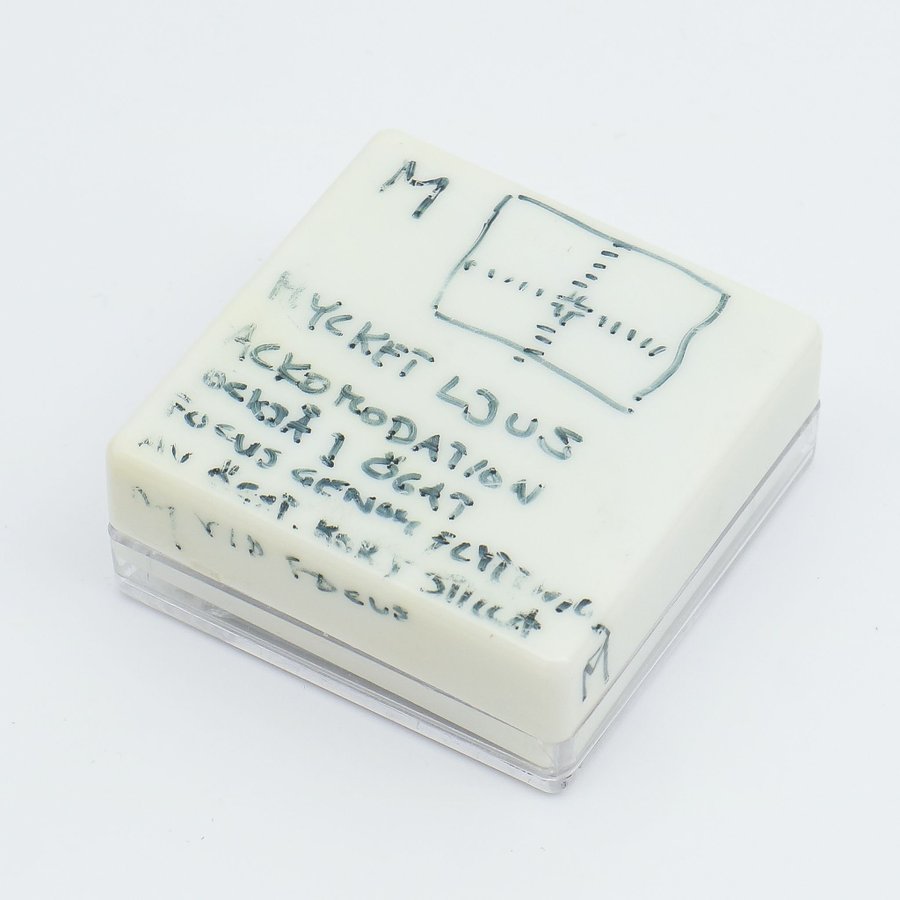 M
MYCKET LJUS
ACKOMODATION
OCKSÅ I ÖGAT
FOCUS GENOM FLYTTNING
AV KORT SKIVA
VID FOCUS
M